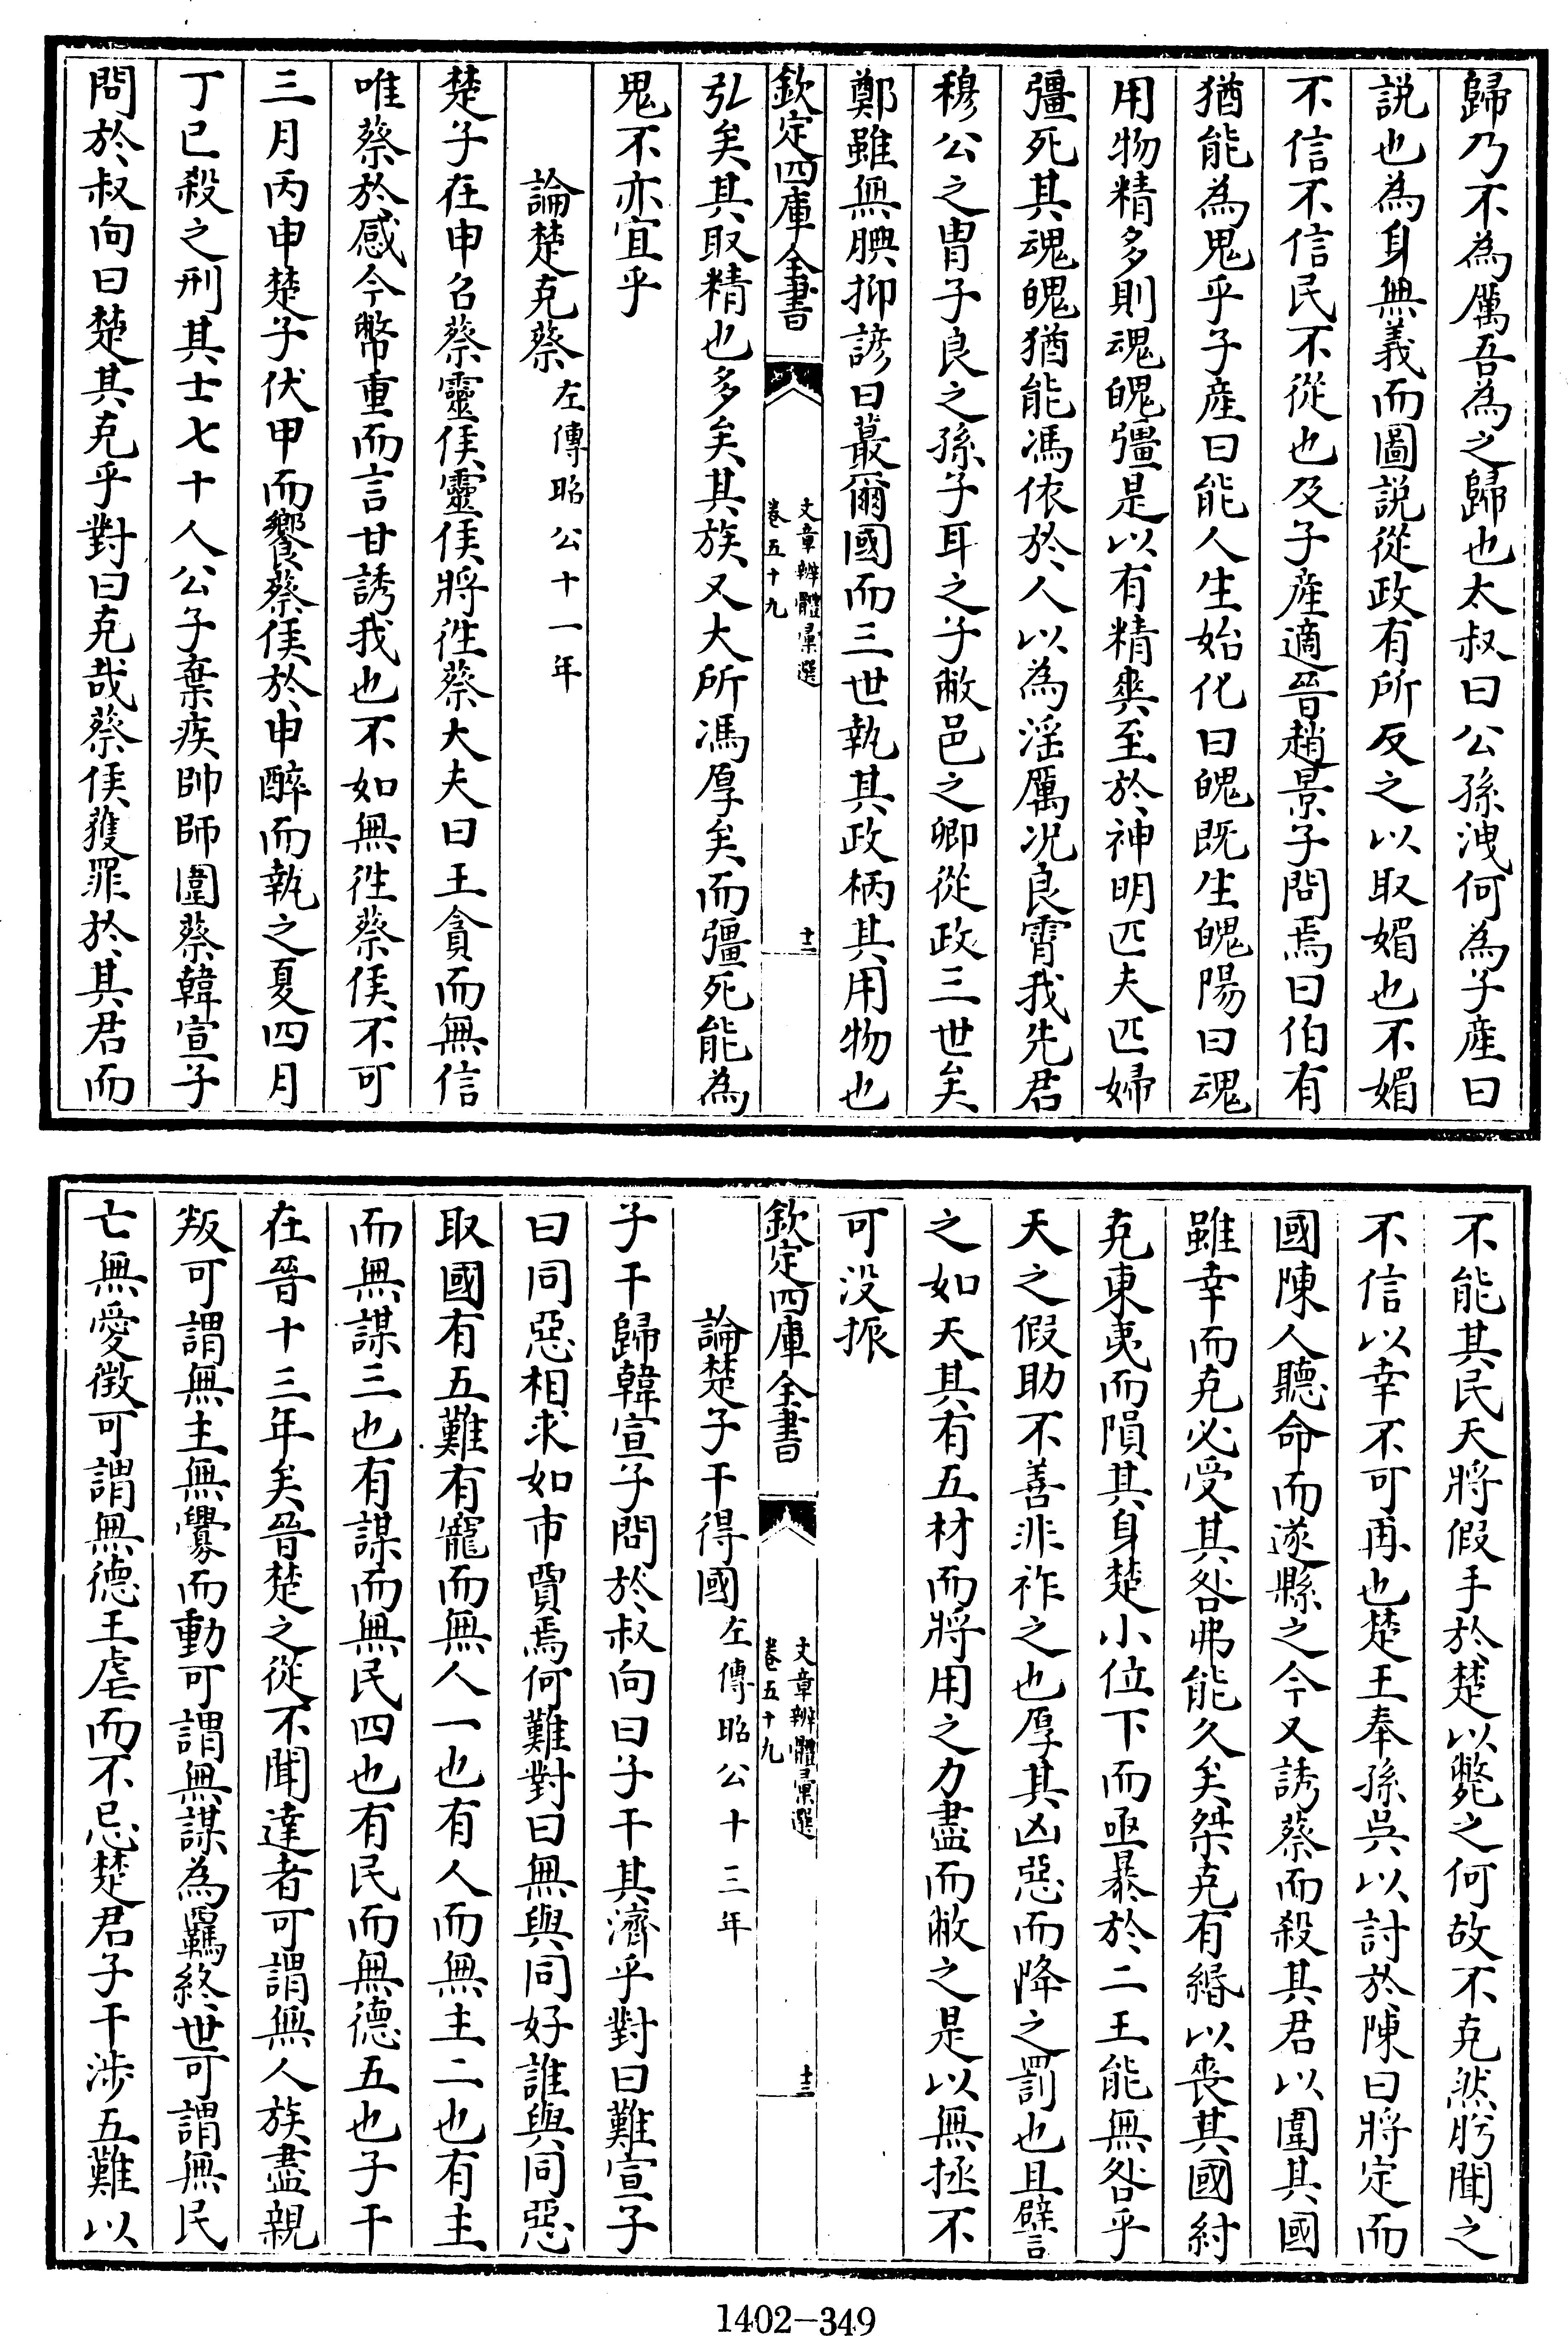 歸乃不為厲吾為之歸也太叔曰公孫洩何為子産曰
説也為身無義而圖説從政有所反之以取媚也不媚
不信不信民不從也及子産適晉趙景子問焉曰伯有
猶能為鬼乎子産曰能人生始化曰魄既生魄陽曰魂
用物精多則魂魄彊是以有精爽至於神明匹夫匹婦
彊死其魂魄猶能馮依於人以為淫厲况良霄我先君
穆公之胄子良之孫子耳之子敝邑之卿從政三世矣
鄭雖無腆抑諺曰蕞爾國而三世執其政柄其用物也
欽定四庫全書
文章辨體彙選
卷五十九
十二
弘矣其取精也多矣其族又大所馮厚矣而彊死能為
鬼不亦宜乎
論楚克蔡左傳昭公十一年
楚子在申召蔡靈侯靈侯將徃蔡大夫曰王貪而無信
唯蔡於感今幣重而言甘誘我也不如無徃蔡侯不可
三月丙申楚子伏甲而饗蔡侯於申醉而執之夏四月
丁巳殺之刑其士七十人公子棄疾帥師圍蔡韓宣子
問於叔向曰楚其克乎對曰克哉蔡侯獲罪於其君而
不能其民天將假手於楚以斃之何故不克然肹聞之
不信以幸不可再也楚王奉孫吳以討於陳曰將定而
國陳人聽命而遂縣之今又誘蔡而殺其君以圍其國
雖幸而克必受其咎弗能久矣桀克有緡以喪其國紂
克東夷而隕其身楚小位下而亟暴於二王能無咎乎
天之假助不善非祚之也厚其凶惡而降之罰也且譬
之如天其有五材而將用之力盡而敝之是以無拯不
可没振
欽定四庫全書
文章辨體彙選
卷五十九
十三
論楚子干得國左傳昭公十三年
子干歸韓宣子問於叔向曰子干其濟乎對曰難宣子
曰同惡相求如市賈焉何難對曰無與同好誰與同惡
取國有五難有寵而無人一也有人而無主二也有主
而無謀三也有謀而無民四也有民而無德五也子干
在晉十三年矣晉楚之從不聞達者可謂無人族盡親
叛可謂無主無釁而動可謂無謀為羈終世可謂無民
亡無愛徴可謂無德王虐而不忌楚君子干涉五難以
1402-349